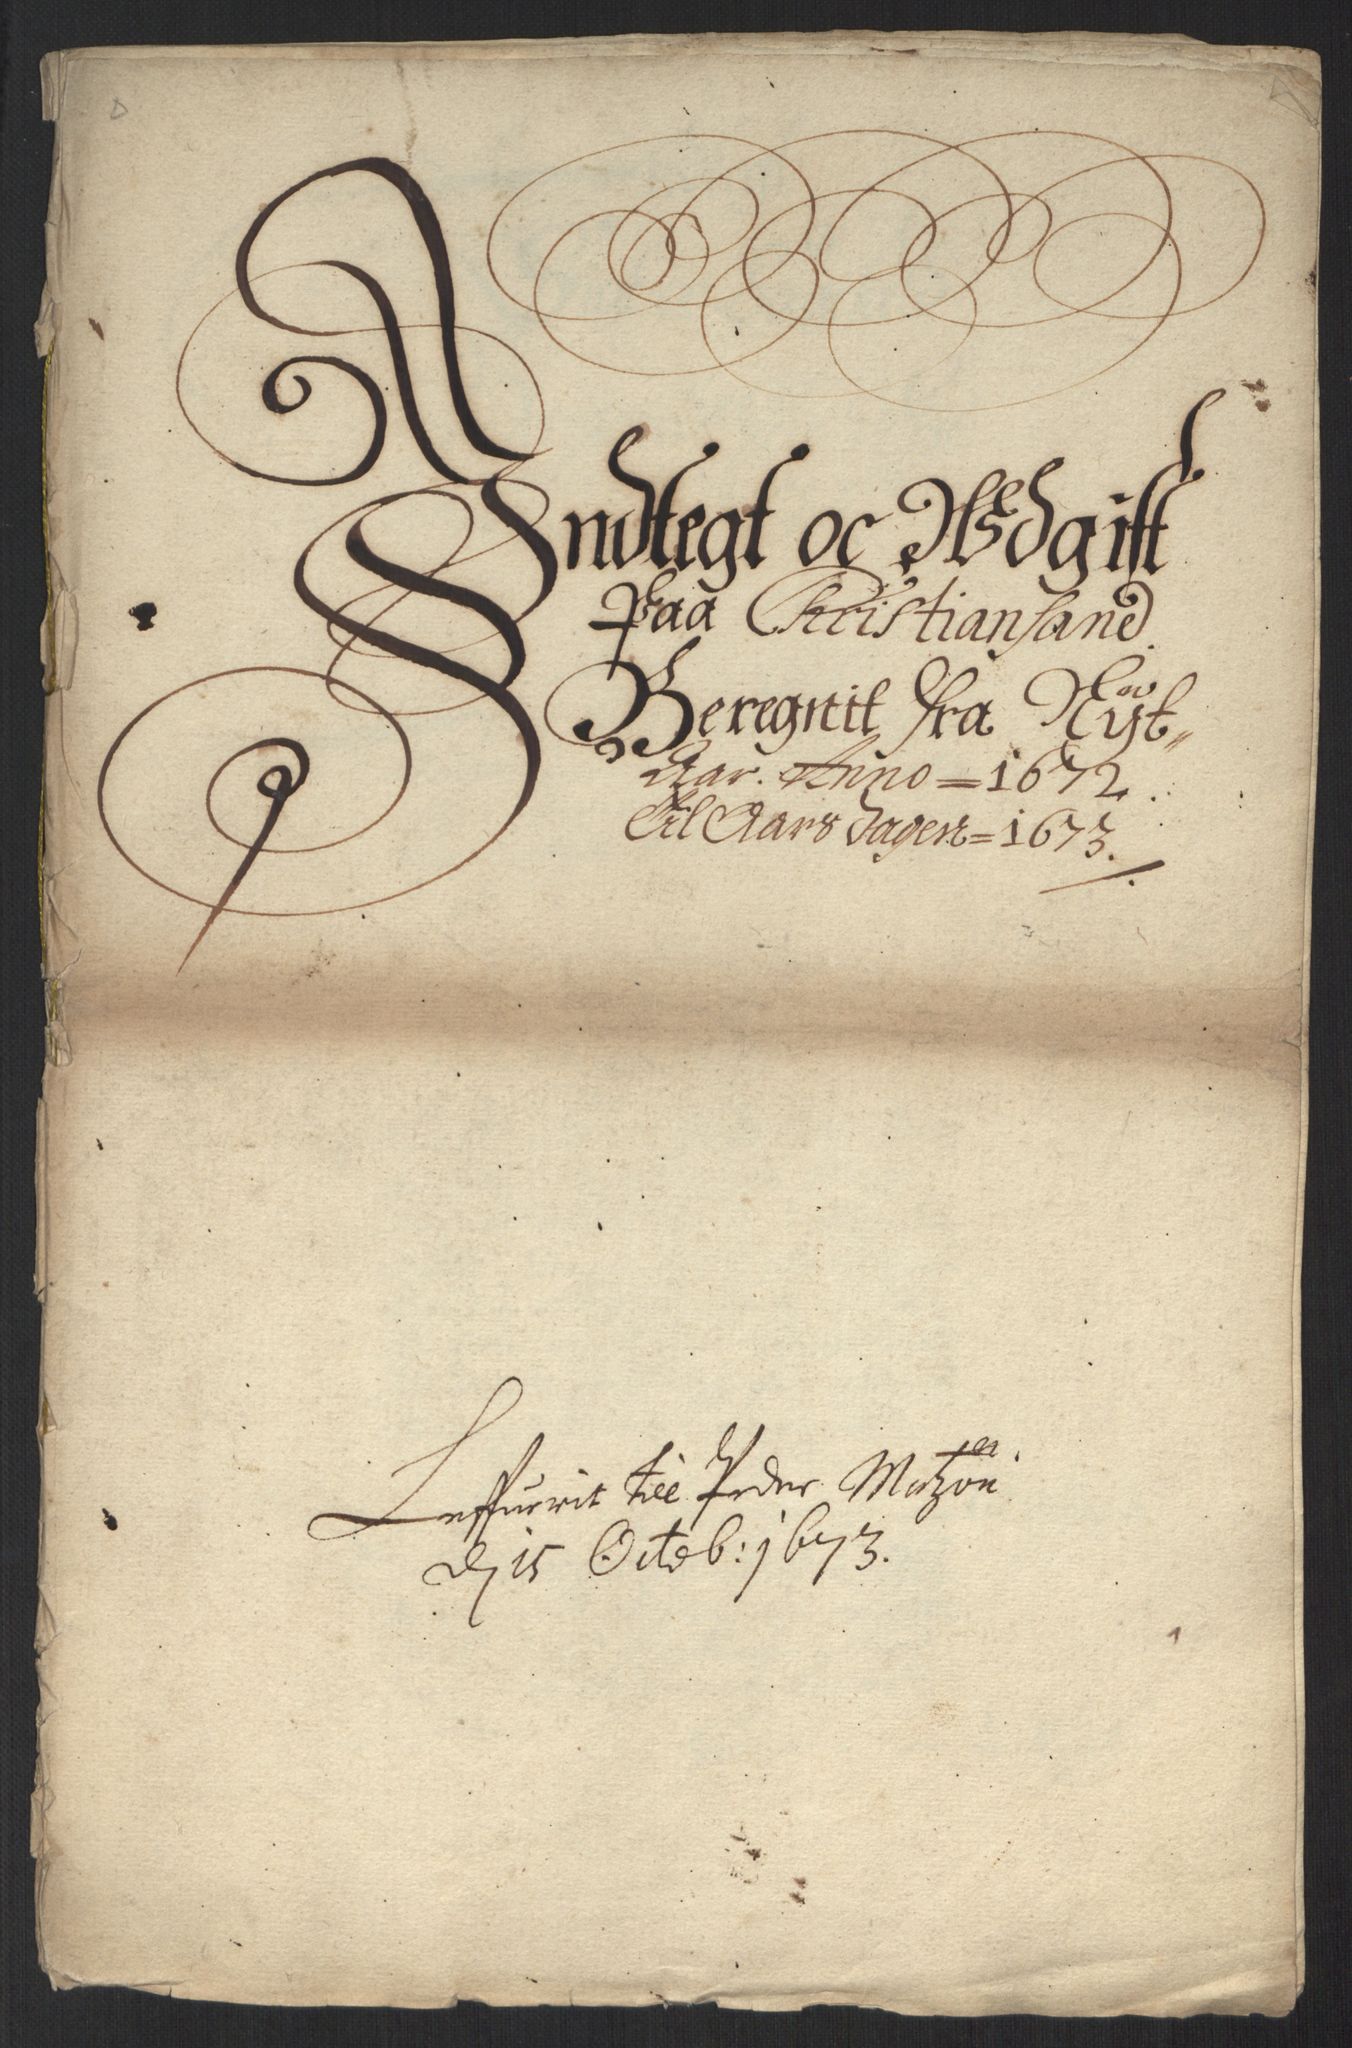 Indtegt oc Udgift
paa Christiansand
Beregnit fra Nyt„
Aar. Anno = 1672.
Til Aars dagen = 1673.
Leffuerit till Peder
dj 15 Octob: 1673.